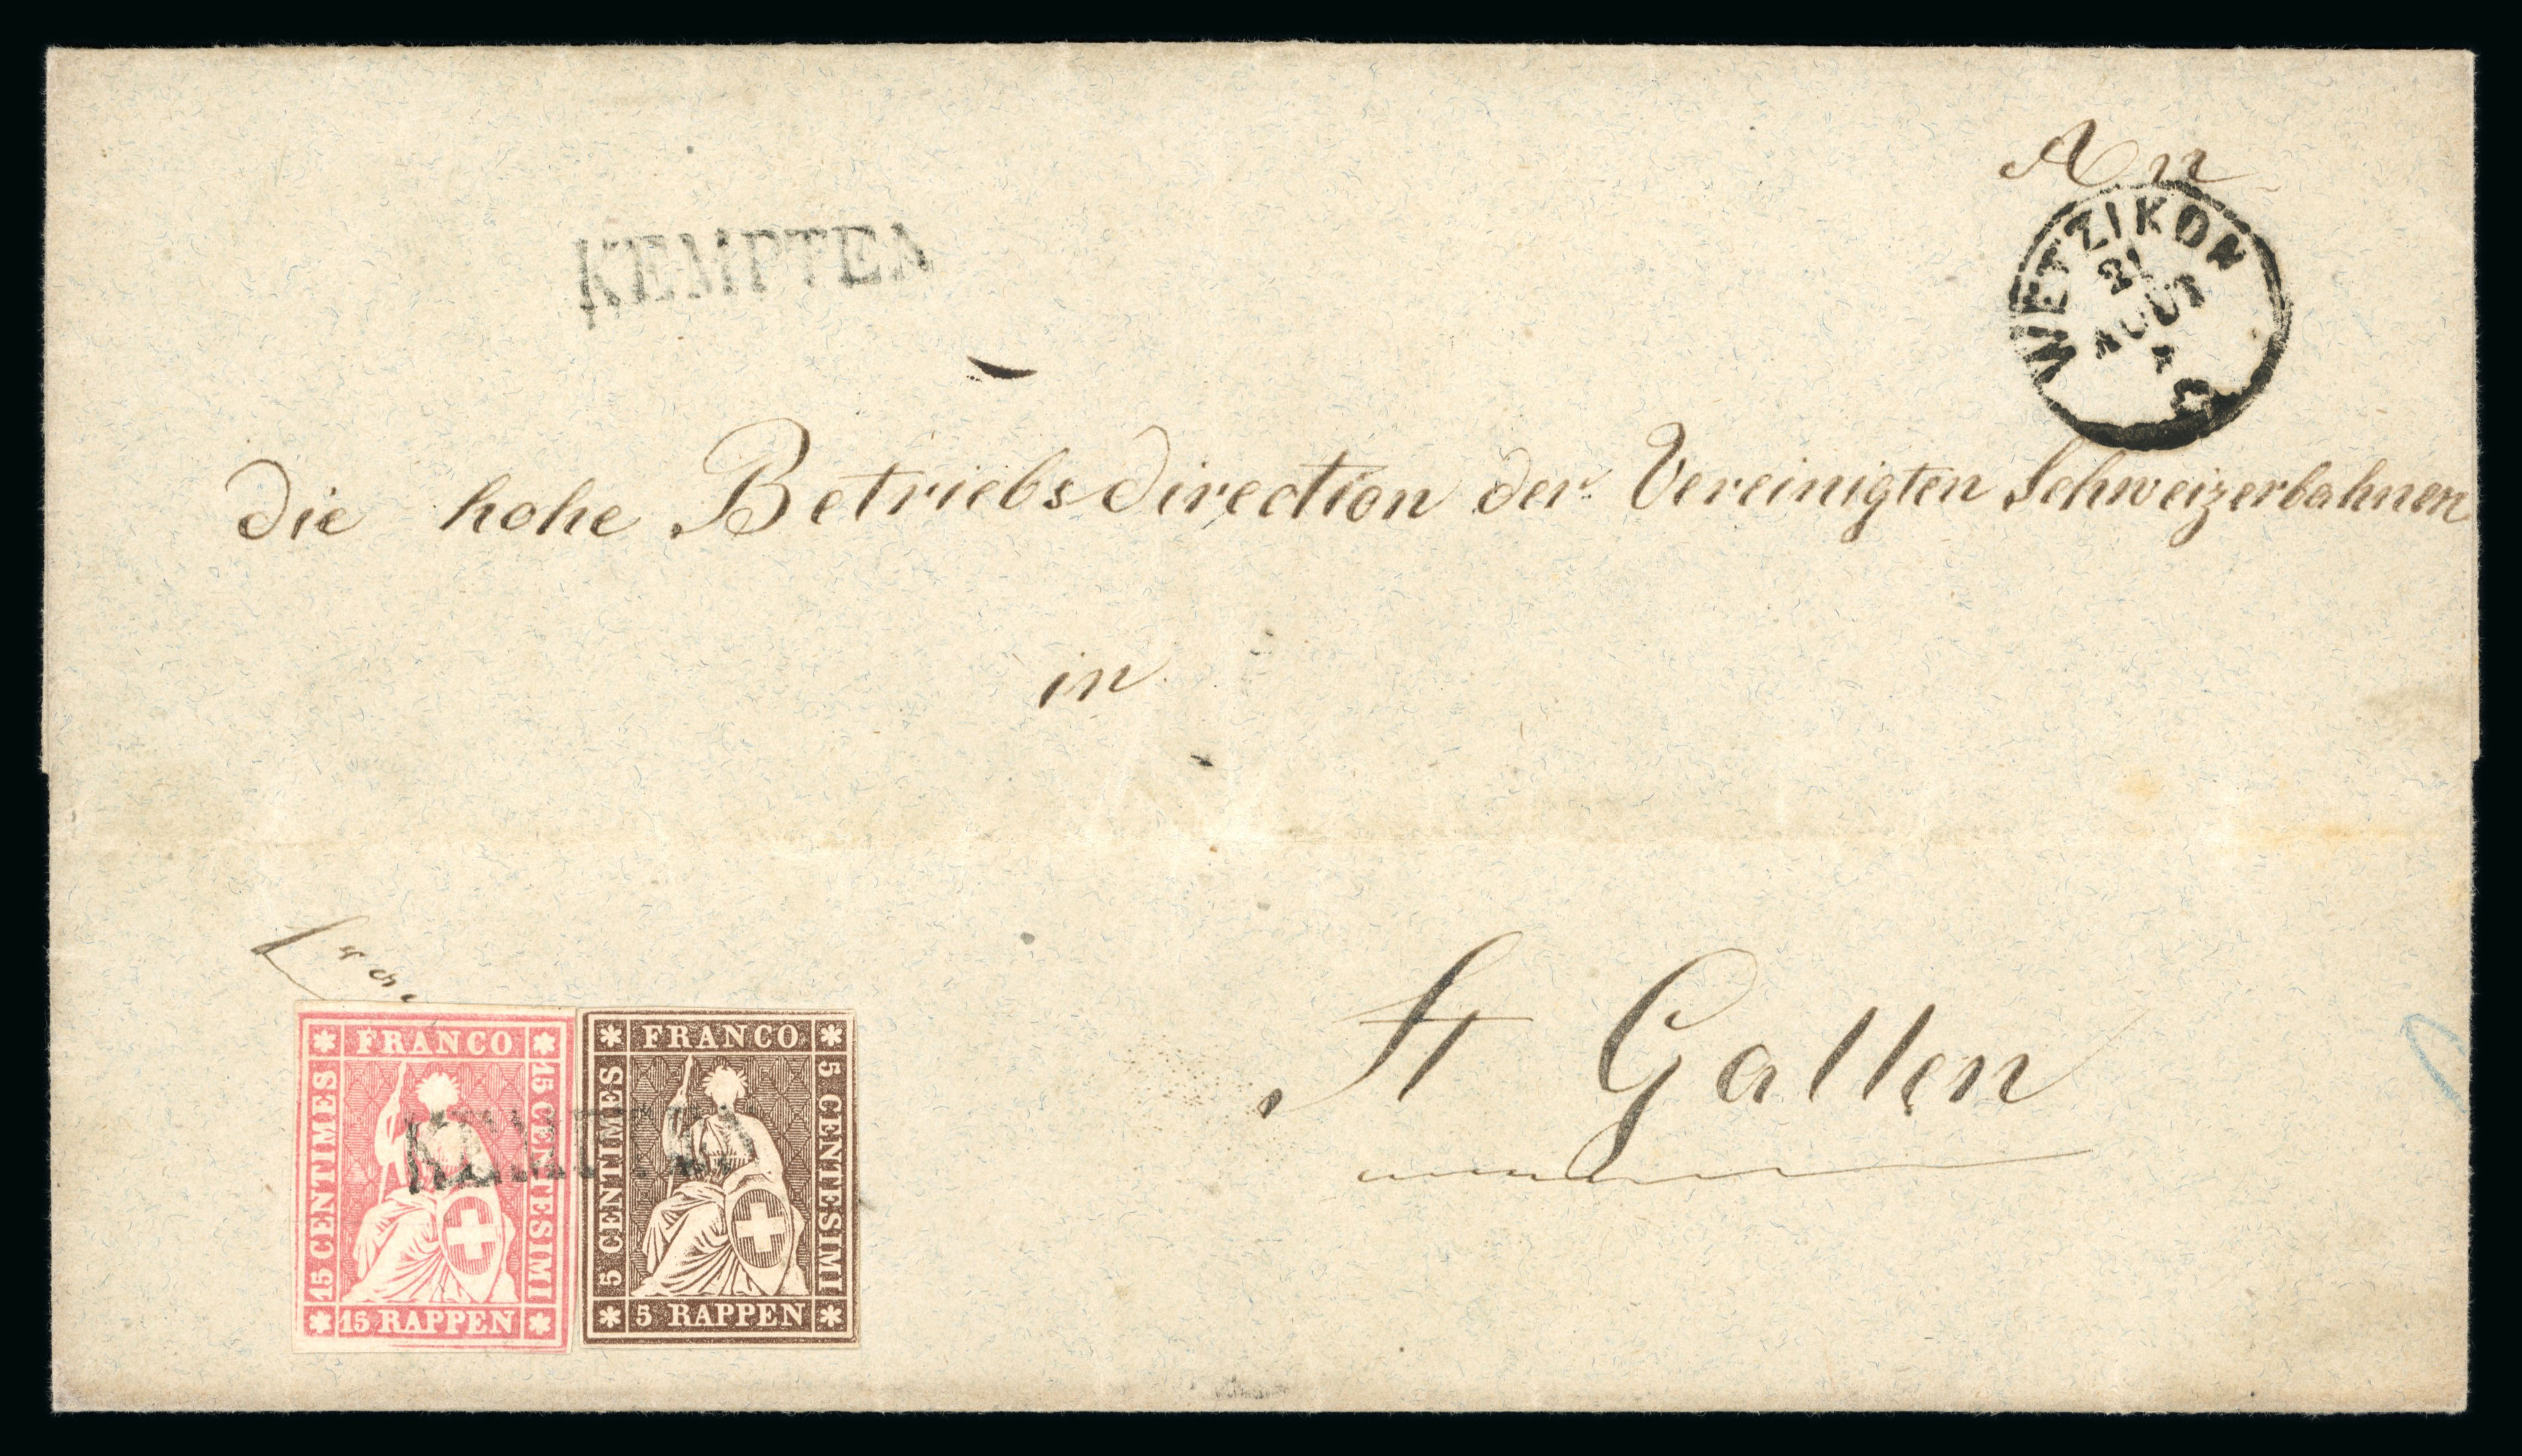 An
KEMPTEN
WETZIKON
AOUT
die hohe Betriebsdirection der Vereinigten Schweizerbahnen
in
St Gallen
FRANCO
15 CENTIMES
15 CENTESIMI
15 RAPPEN
FRANCO
5 CENTIMES
5 CENTESIMI
5 RAPPEN
KEMPTEN